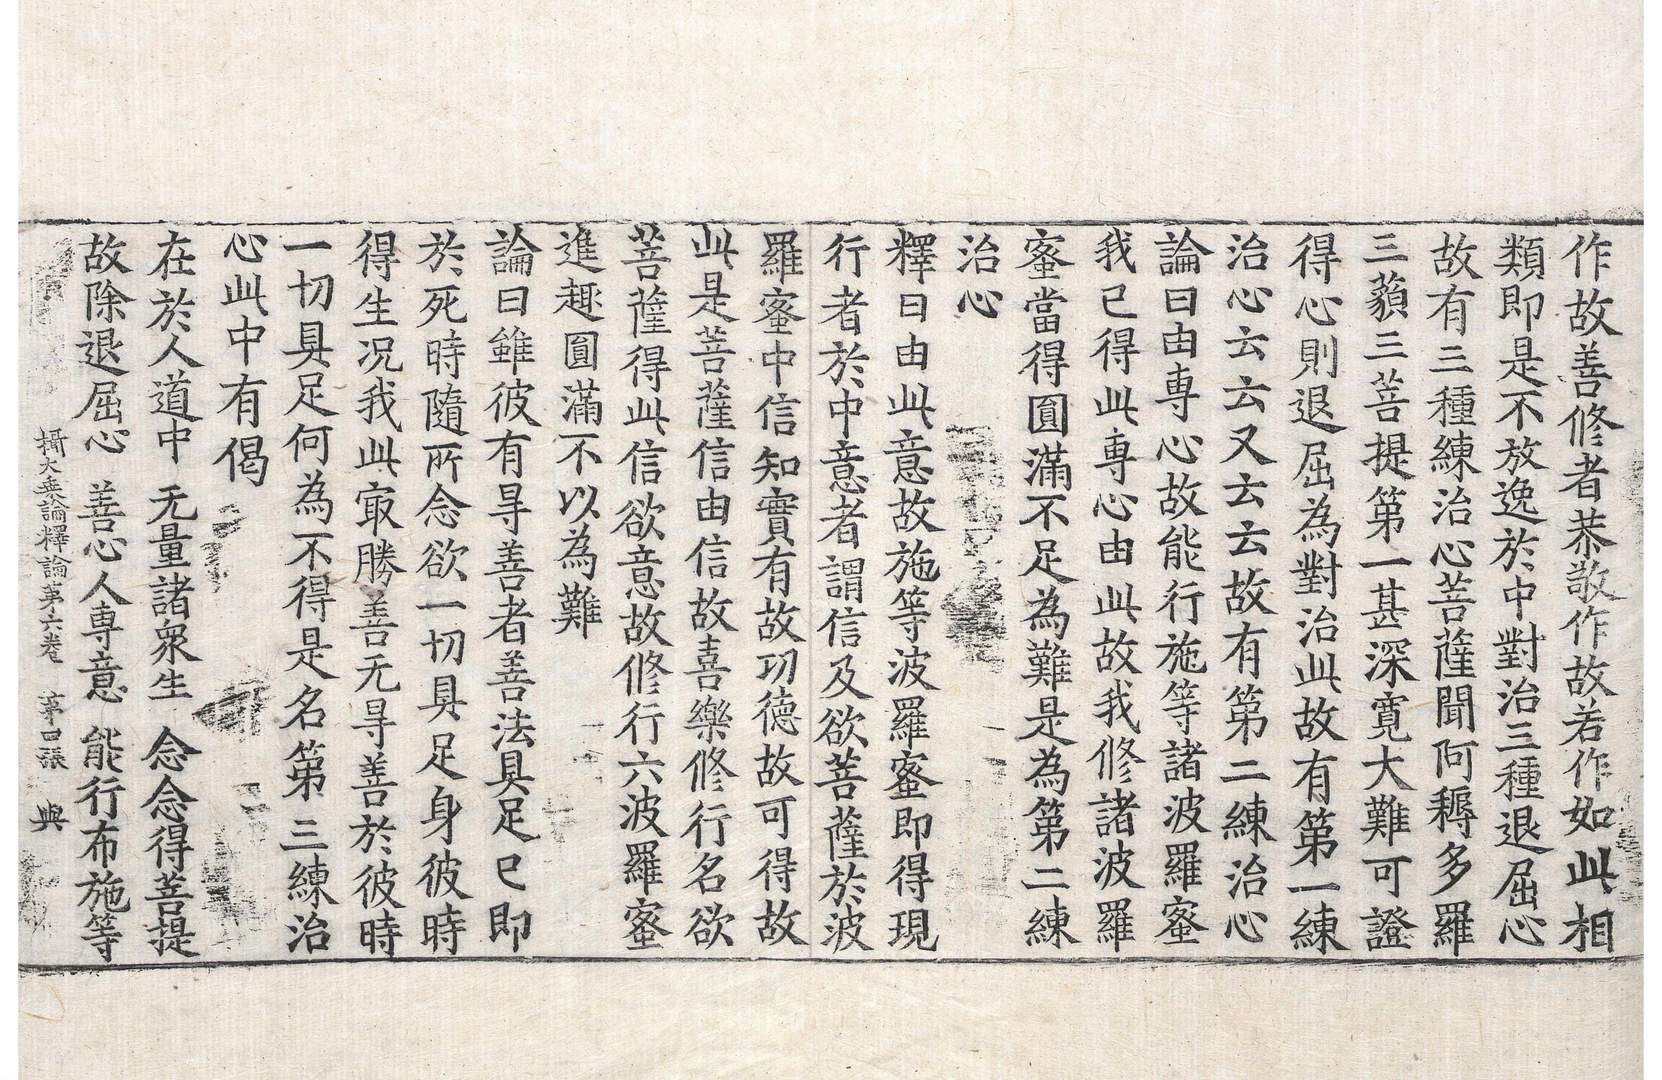 作故善修者恭敬作故若作如此相
類即是不放逸於中對治三種退屈心
故有三種練治心菩薩聞阿耨多羅
三藐三菩提第一甚深寬大難可證
得心則退屈為對治此故有第一練
治心云云又云云故有第二練治心
論曰由專心故能行施等諸波羅蜜
我已得此專心由此故我修諸波羅
蜜當得圓滿不足為難是為第二練
治心
釋曰由此意故施等波羅蜜即得現
行者於中意者謂信及欲菩薩於波
羅蜜中信知實有故功德故可得故
此是菩薩信由信故喜樂修行名欲
菩薩得此信欲意故修行六波羅蜜
進趣圓滿不以為難
論曰雖彼有㝵善者善法具足已即
於死時隨所念欲一切具足身彼時
得生况我此㝡勝善无㝵善於彼時
一切具足何為不得是名第三練治
心此中有偈
在於人道中　无量諸衆生　念念得菩提
故除退屈心　善心人專意　能行布施等
攝大乗論釋論苐六卷　苐四張　興